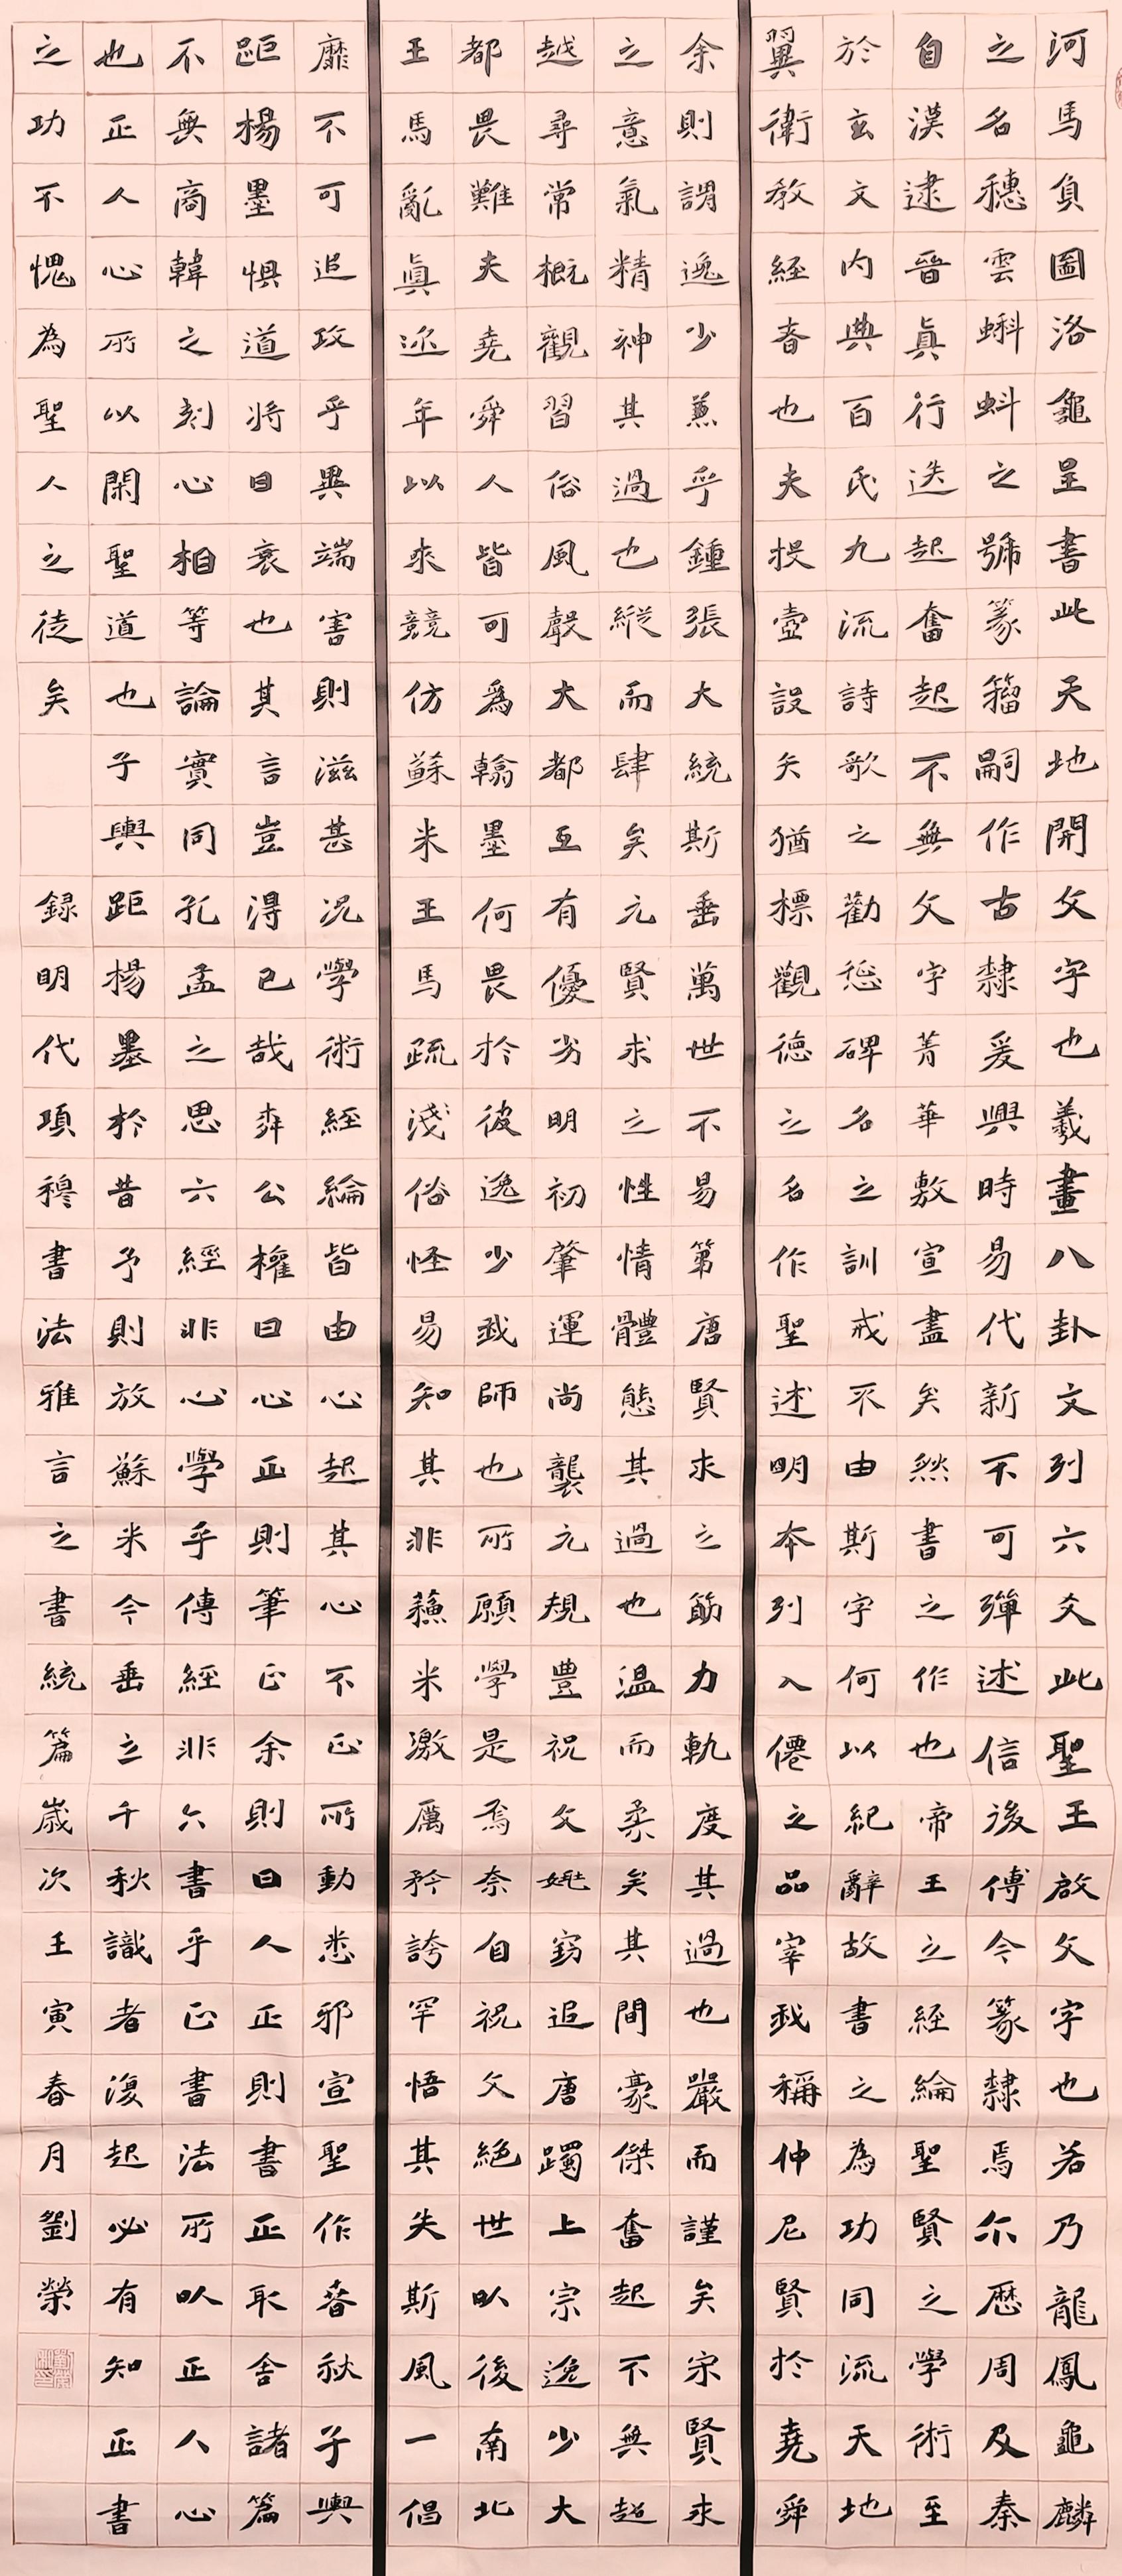 河馬負圖洛龜呈書此天地開文字也羲畫八卦文列六爻此聖王啟文字也若乃龍鳳龜麟
之名穗雲蝌蚪之號篆籀嗣作古隸爰興時易代新不可殫述信後傳今篆隸焉尒歷周及秦
自漢逮晉真行迭起奮起不無文字菁華敷宣盡矣然書之作也帝王之經綸聖賢之學術至
於玄文內典百氏九流詩歌之勸懲碑名之訓戒不由斯字何以紀辭故書之為功同流天地
翼衛教經者也夫投壺設矢猶標觀德之名作聖述明本列入僊之品宰我稱仲尼賢於堯舜
余則謂逸少兼乎鍾張大統斯垂萬世不易第唐賢求之筋力軌度其過也嚴而謹矣宋賢求
之意氣精神其過也縱而肆矣元賢求之性情體態其過也温而柔矣其間豪傑奮起不無超
越尋常概觀習俗風聲大都互有優劣明初肇運尚襲元規豐祝文姚窈追唐躅上宗逸少大
都畏難夫堯舜人皆可爲翰墨何畏於彼逸少我師也所願學是焉奈自祝文絕世以後南北
王馬亂真迩年以來競仿蘇米王馬疏淺俗怪易知其非蘓米激厲矜誇罕悟其失斯風一倡
靡不可追攻乎異端害則滋甚况學術經綸皆由心起其心不正所動悉邪宣聖作春秋子輿
距楊墨惧道將日衰也其言豈得已哉柳公權曰心正則筆正余則曰人正則書正取舍諸篇
不無商韓之刻心相等論實同孔孟之思六經非心學乎傳經非六書乎正書法所以正人心
也正人心所以閑聖道也子輿距楊墨於昔予則放蘇米今垂立千秋識者復起必有知正書
之功不愧為聖人之徒矣
録明代項穆書法雅言之書統篇歲次壬寅春月劉榮